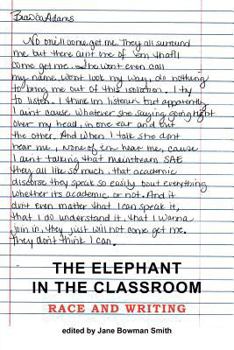 Bianca Adams
No one'll come get me. They all surround
me but there aint one of 'em that'll
come get me. She wont even call
my name, wont look my way, do nothing
to bring me out of this isolation. I try
to listen. I think im listenin but apparently
I aint cause whatever she saying going right
over my head, in one ear and out
the other. And when I talk she dont
hear me, none of em hear me, cause
I aint talking that mainstream SAE
they all like so much, that academic
discorse they speak so easily bout everything
whether its academic or not. And it
dont even matter that I can speak it,
that I do understand it, that I wanna
join in, they just will not come get me.
They dont think I can.
THE ELEPHANT
IN THE CLASSROOM
RACE AND WRITING
edited by Jane Bowman Smith